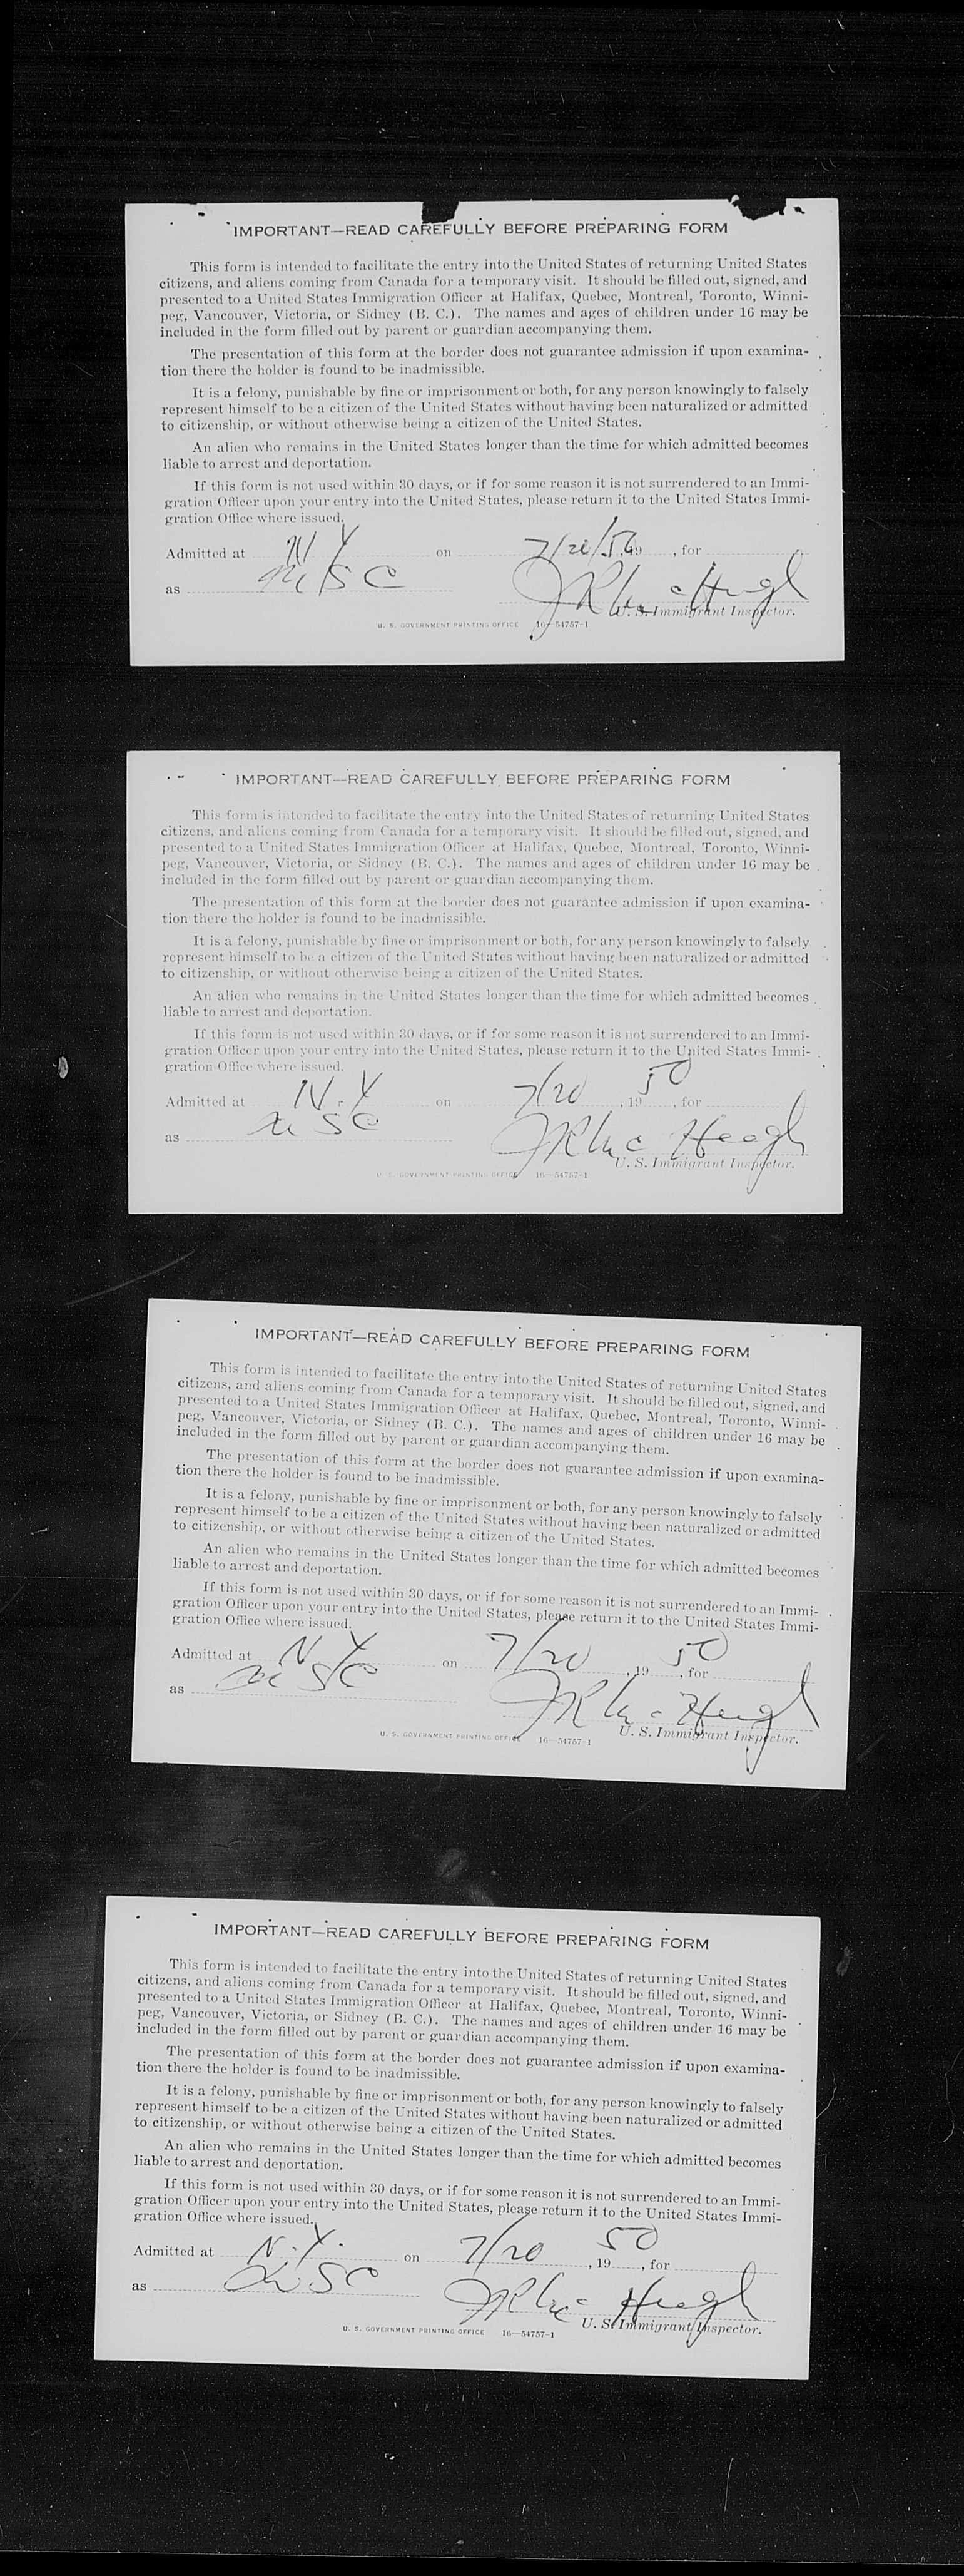 IMPORTANT—READ CAREFULLY BEFORE PREPARING FORM
This form is intended to facilitate the entry into the United States of returning United States
citizens, and aliens coming from Canada for a temporary visit. It should be filled out, signed, and
presented to a United States Immigration Officer at Halifax, Quebec, Montreal, Toronto, Winni-
peg, Vancouver, Victoria, or Sidney (B. C.). The names and ages of children under 16 may be
included in the form filled out by parent or guardian accompanying them.
The presentation of this form at the border does not guarantee admission if upon examina-
tion there the holder is found to be inadmissible.
It is a felony, punishable by fine or imprisonment or both, for any person knowingly to falsely
represent himself to be a citizen of the United States without having been naturalized or admitted
to citizenship, or without otherwise being a citizen of the United States.
An alien who remains in the United States longer than the time for which admitted becomes
liable to arrest and deportation.
If this form is not used within 30 days, or if for some reason it is not surrendered to an Immi-
gration Officer upon your entry into the United States, please return it to the United States Immi-
gration Office where issued.
Admitted at N Y on 7/20/50, 19 , for
as USC
U. S. Immigrant Inspector.
U. S. GOVERNMENT PRINTING OFFICE 16—54757-1
IMPORTANT—READ CAREFULLY BEFORE PREPARING FORM
This form is intended to facilitate the entry into the United States of returning United States
citizens, and aliens coming from Canada for a temporary visit. It should be filled out, signed, and
presented to a United States Immigration Officer at Halifax, Quebec, Montreal, Toronto, Winni-
peg, Vancouver, Victoria, or Sidney (B. C.). The names and ages of children under 16 may be
included in the form filled out by parent or guardian accompanying them.
The presentation of this form at the border does not guarantee admission if upon examina-
tion there the holder is found to be inadmissible.
It is a felony, punishable by fine or imprisonment or both, for any person knowingly to falsely
represent himself to be a citizen of the United States without having been naturalized or admitted
to citizenship, or without otherwise being a citizen of the United States.
An alien who remains in the United States longer than the time for which admitted becomes
liable to arrest and deportation.
If this form is not used within 30 days, or if for some reason it is not surrendered to an Immi-
gration Officer upon your entry into the United States, please return it to the United States Immi-
gration Office where issued.
Admitted at N. Y on 7/20, 19 50, for
as USC
U. S. Immigrant Inspector.
U. S. GOVERNMENT PRINTING OFFICE 16—54757-1
IMPORTANT—READ CAREFULLY BEFORE PREPARING FORM
This form is intended to facilitate the entry into the United States of returning United States
citizens, and aliens coming from Canada for a temporary visit. It should be filled out, signed, and
presented to a United States Immigration Officer at Halifax, Quebec, Montreal, Toronto, Winni-
peg, Vancouver, Victoria, or Sidney (B. C.). The names and ages of children under 16 may be
included in the form filled out by parent or guardian accompanying them.
The presentation of this form at the border does not guarantee admission if upon examina-
tion there the holder is found to be inadmissible.
It is a felony, punishable by fine or imprisonment or both, for any person knowingly to falsely
represent himself to be a citizen of the United States without having been naturalized or admitted
to citizenship, or without otherwise being a citizen of the United States.
An alien who remains in the United States longer than the time for which admitted becomes
liable to arrest and deportation.
If this form is not used within 30 days, or if for some reason it is not surrendered to an Immi-
gration Officer upon your entry into the United States, please return it to the United States Immi-
gration Office where issued.
Admitted at N Y on 7/20, 19 50, for
as USC
U. S. Immigrant Inspector.
U. S. GOVERNMENT PRINTING OFFICE 16—54757-1
IMPORTANT—READ CAREFULLY BEFORE PREPARING FORM
This form is intended to facilitate the entry into the United States of returning United States
citizens, and aliens coming from Canada for a temporary visit. It should be filled out, signed, and
presented to a United States Immigration Officer at Halifax, Quebec, Montreal, Toronto, Winni-
peg, Vancouver, Victoria, or Sidney (B. C.). The names and ages of children under 16 may be
included in the form filled out by parent or guardian accompanying them.
The presentation of this form at the border does not guarantee admission if upon examina-
tion there the holder is found to be inadmissible.
It is a felony, punishable by fine or imprisonment or both, for any person knowingly to falsely
represent himself to be a citizen of the United States without having been naturalized or admitted
to citizenship, or without otherwise being a citizen of the United States.
An alien who remains in the United States longer than the time for which admitted becomes
liable to arrest and deportation.
If this form is not used within 30 days, or if for some reason it is not surrendered to an Immi-
gration Officer upon your entry into the United States, please return it to the United States Immi-
gration Office where issued.
Admitted at N. Y. on 7/20, 19 50, for
as USC
U. S. Immigrant Inspector.
U. S. GOVERNMENT PRINTING OFFICE 16—54757-1